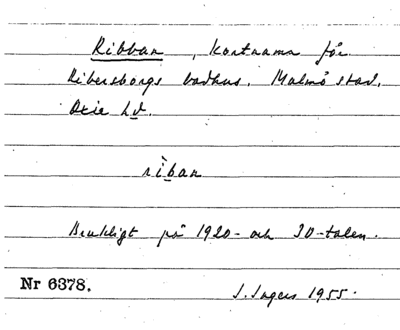 Ribban, kortnamn för
Ribersborgs badhus. Malmö stad.
Oxie hd.
riban
Brukligt på 1920- och 30-talen.
Nr 6378. J. Ingers 1955.